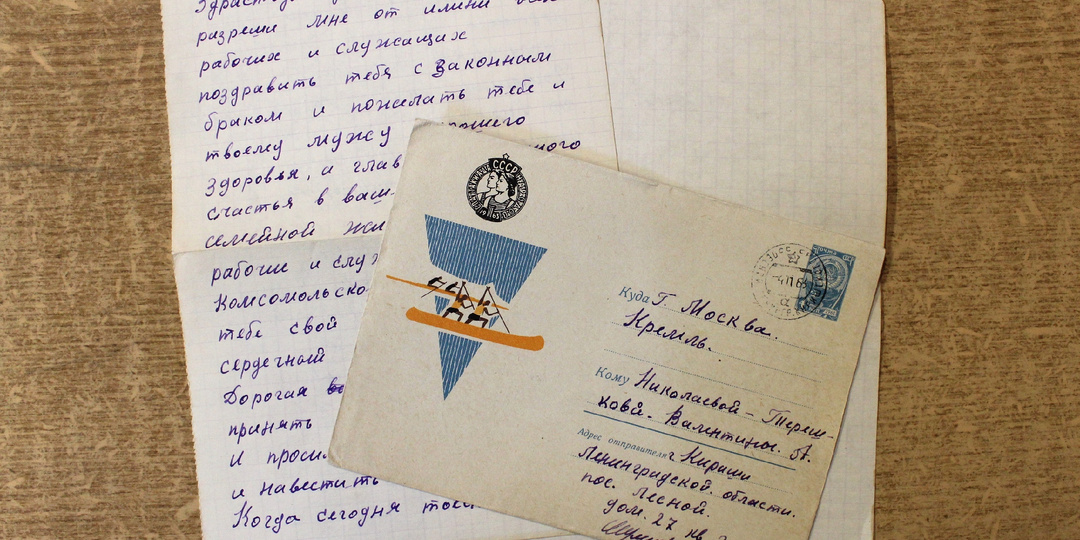 разреши мне от имени
рабочих и служащих
поздравить тебя с Законным
браком и пожелать тебе и
твоему мужу
здоровья, и глав
счастья в ваш
семейной жи
рабочие и служ
Комсомольско
тебе свой
сердечный
Дорогая
принять
и проси
и навестить
Когда сегодня твоя
СССР
Куда Г. Москва.
Кремль.
Кому Николаевой - Тереш-
ковой. Валентины. Вл.
Адрес отправителя г Кириши
Ленинградской. области.
пос. Лесной.
дом. 27 кв